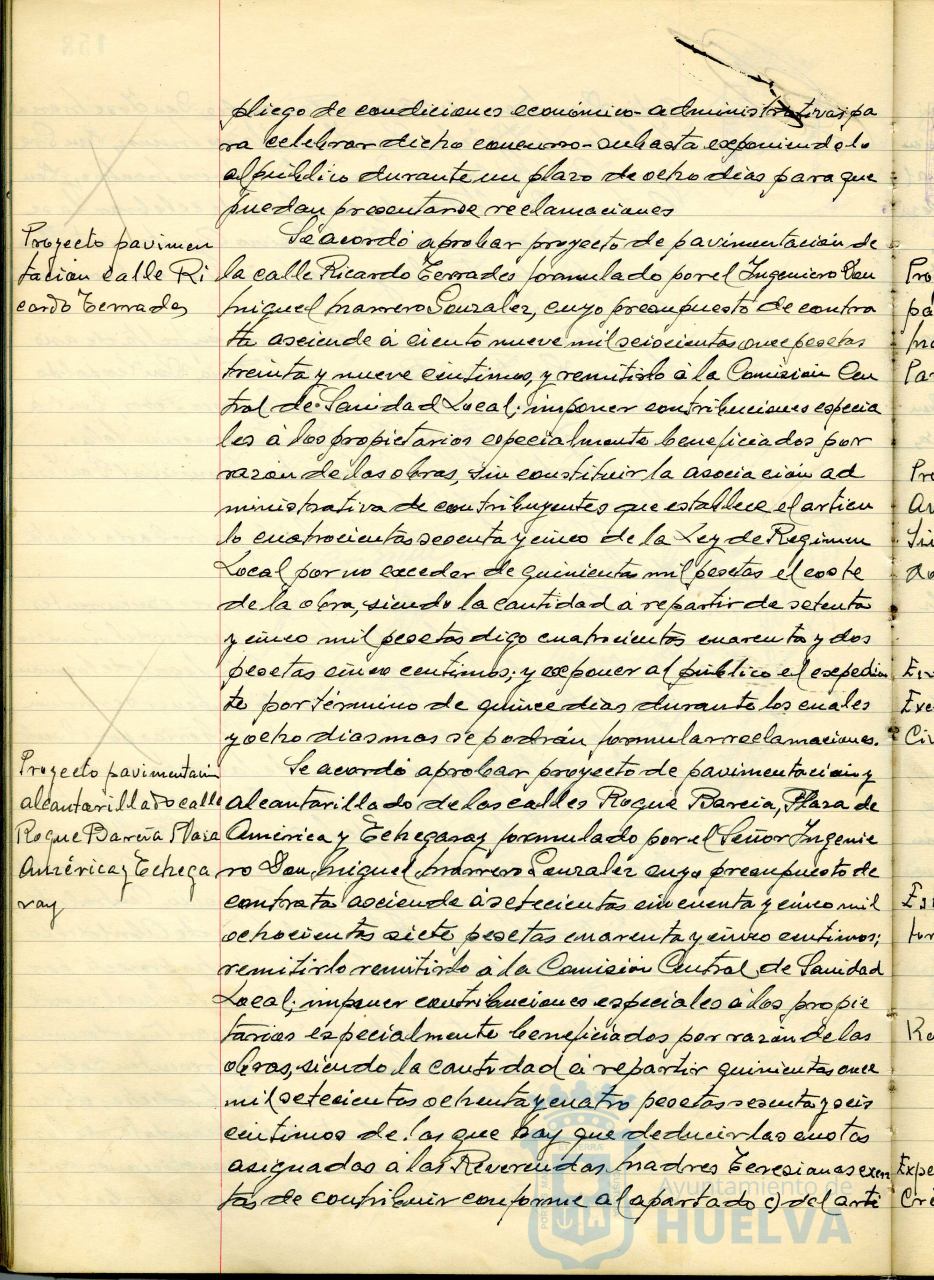 pliego de condiciones económico-administrativas pa
ra celebrar dicho concurso-subasta exponiendolo
al público durante un plazo de ocho dias para que
puedan presentarse reclamaciones
Proyecto pavimen
tación calle Ri
cardo Terrades
Se acordó aprobar proyecto de pavimentación de
la calle Ricardo Terrades formulado por el Ingeniero Don
Miguel Marrero Gonzalez, cuyo presupuesto de contra
ta asciende á ciento nueve mil seiscientas once pesetas
treinta y nueve centimos, y remitirlo á la Comisión Cen
tral de Sanidad Local; imponer contribuciones especia
les á los propietarios especialmente beneficiados por
razón de las obras, sin constituir la asociación ad
ministrativa de contribuyentes que establece el articu
lo cuatrocientos sesenta y cinco de la Ley de Regimen
Local por no exceder de quinientas mil pesetas el coste
de la obra, siendo la cantidad á repartir de setenta
y cinco mil pesetas digo cuatrocientas cuarenta y dos
pesetas cinco centimos; y exponer al público el expedien
te por término de quince dias durante los cuales
y ocho dias mas se podrán formular reclamaciones.
Proyecto pavimentación
alcantarillado calle
Roque Barcia Plaza
América y Echega
ray
Se acordó aprobar proyecto de pavimentación y
alcantarillado de las calles Roque Barcia, Plaza de
América y Echegaray formulado por el Señor Ingenie
ro Don Miguel Marrero Gonzalez cuyo presupuesto de
contrata asciende á setecientas cincuenta y cinco mil
ochocientas siete pesetas cuarenta y cinco centimos;
remitirlo remitirlo á la Comisión Central de Sanidad
Local; imponer contribuciones especiales á los propie
tarios especialmente beneficiados por razón de las
obras, siendo la cantidad á repartir quinientas once
mil setecientas ochenta y cuatro pesetas sesenta y seis
centimos de las que hay que deducir las cuotas
asignadas á las Reverendas Madres Teresianas exen
tas de contribuir conforme al apartado c) del arti
Ayuntamiento de
HUELVA